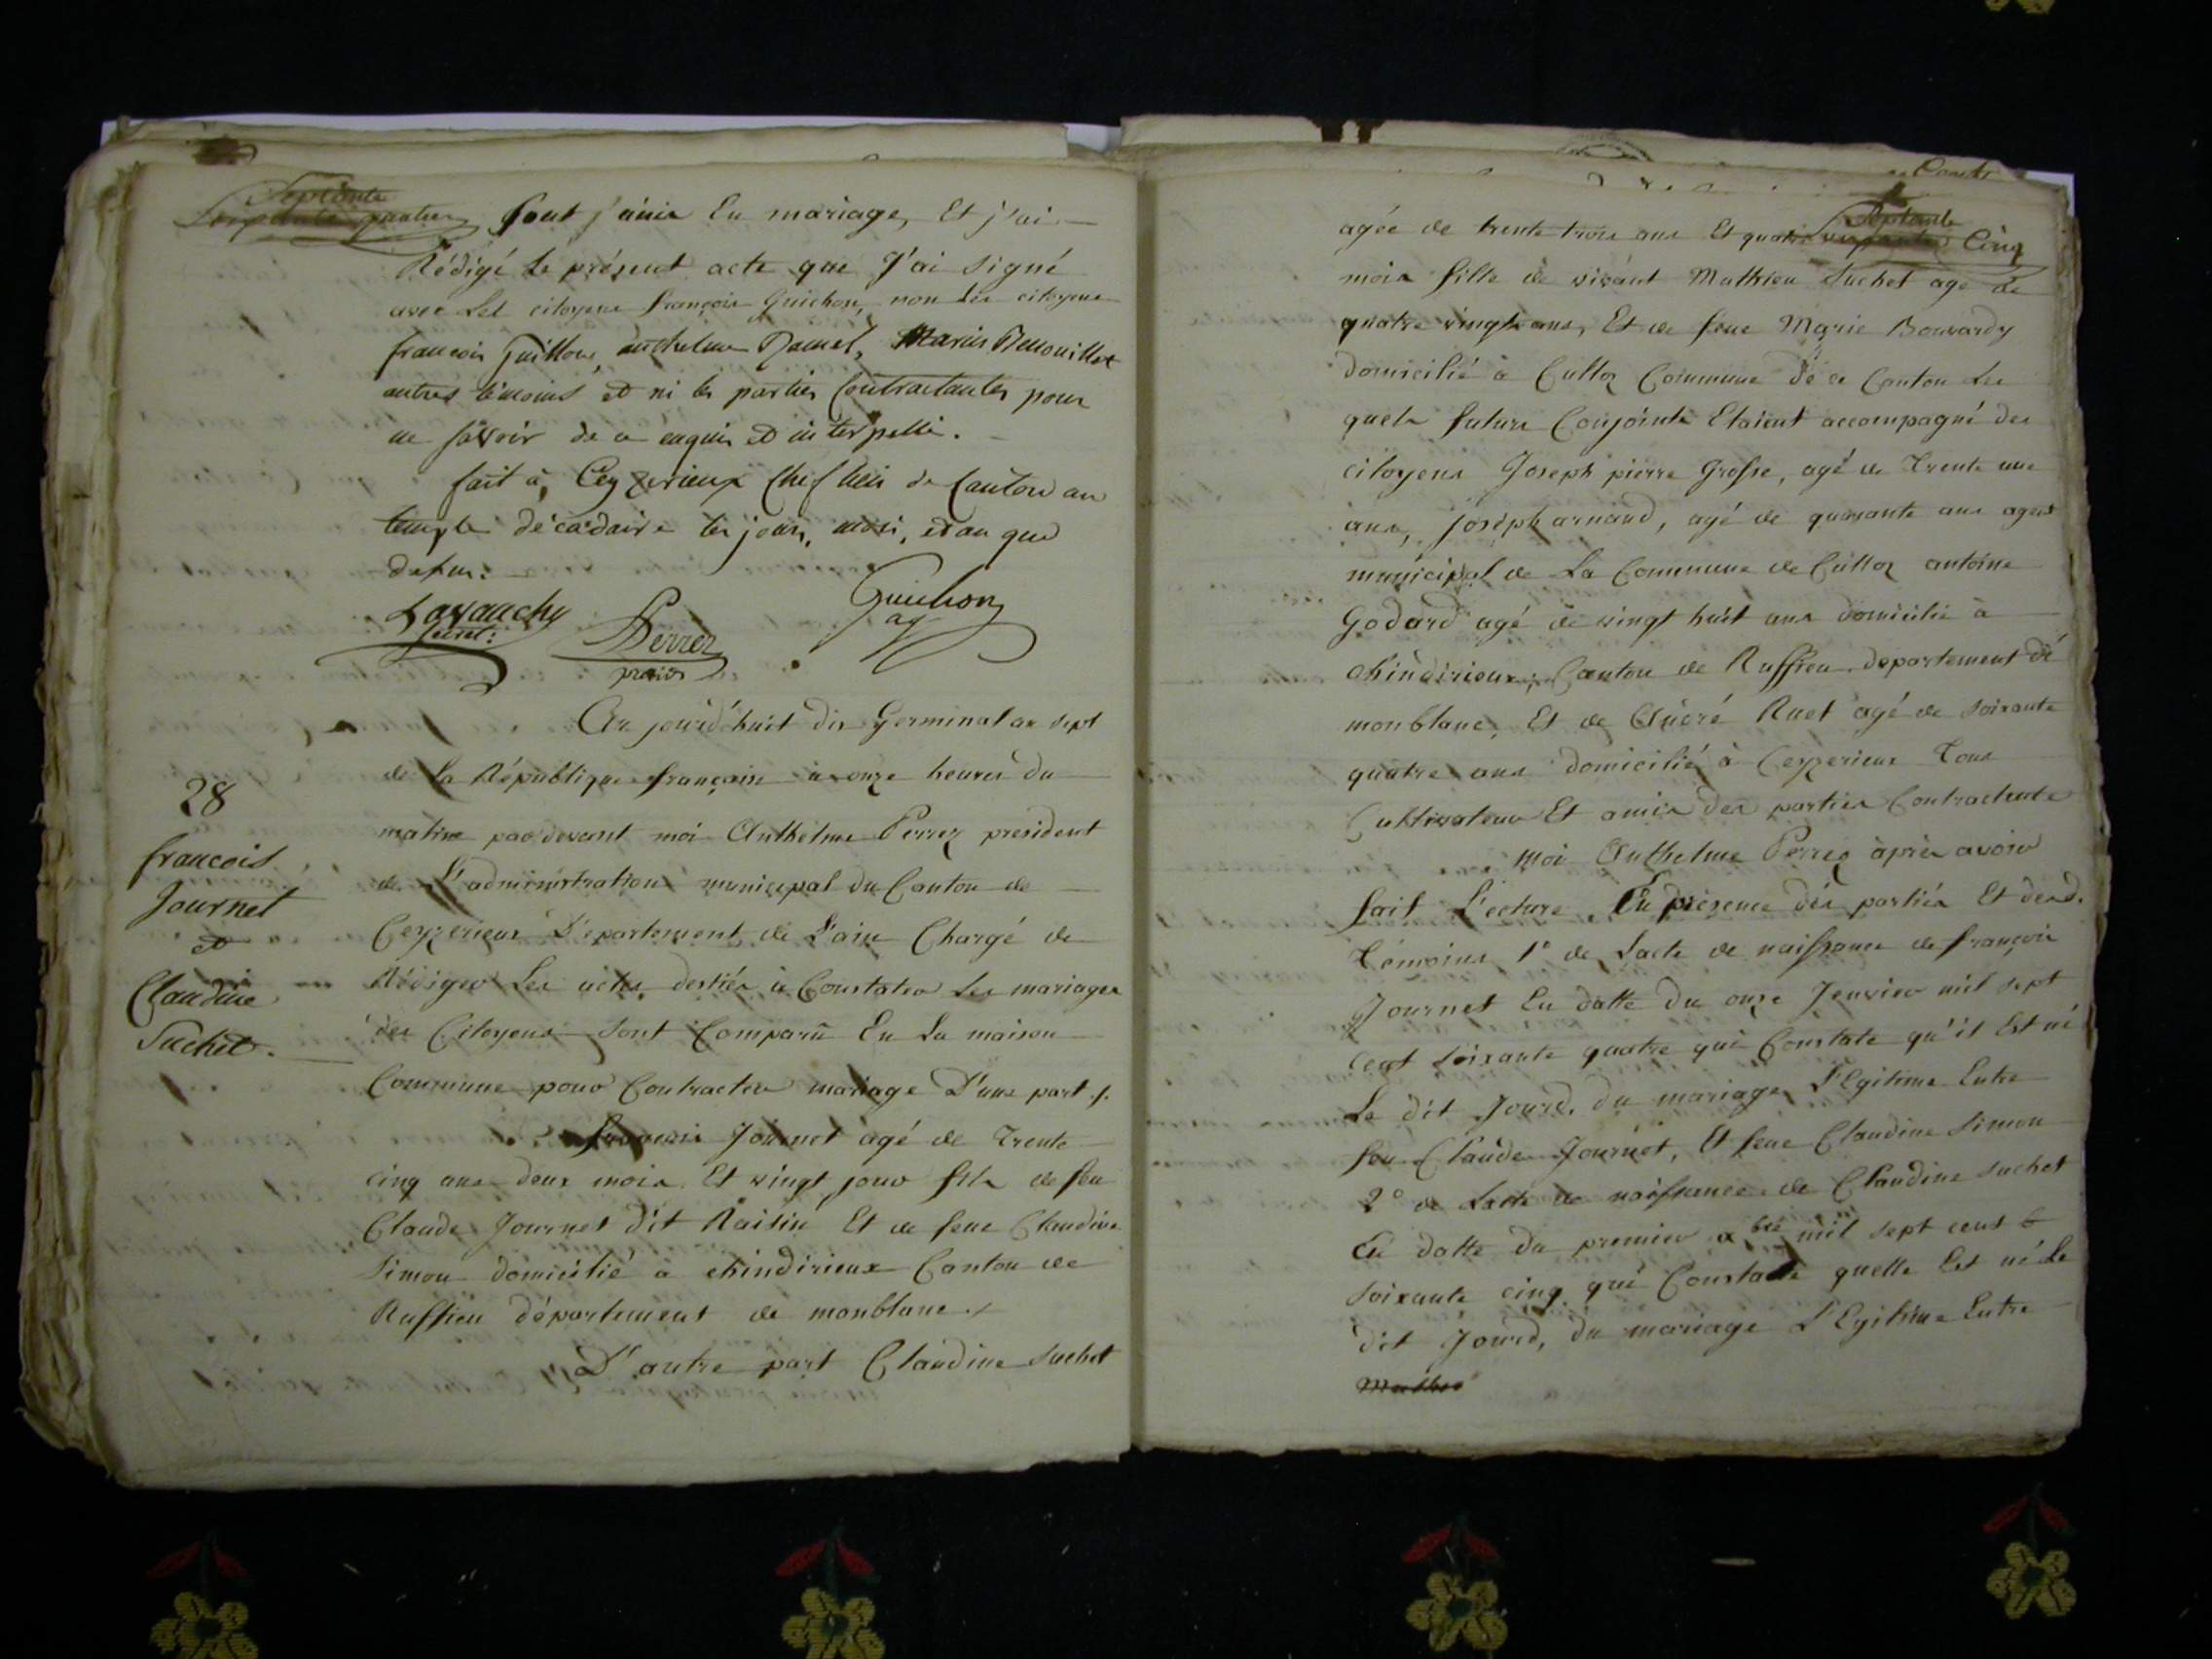 Septante
quatre
sont j'unis En mariage, Et j'ai
Rédigé Le présent acte que J'ai signé
avec Les citoyens françois Guichon, non Les citoyens
francois Guillon, anthelme Ramel, Marin
autres témoins et ni les parties Contractantes pour
ne savoir de ce enquis et interpellé.
fait à, Ceyzerieux Chef lieu de Canton au
temple décadaire les jours, mois, et an que
dessus.
Lavauchy
secret:
Perrez
présid
Guichon
ag
Au jourd'huit dix Germinal an sept
de La République française à onze heures du
matine pardevant moi Anthelme Perrez president
de L'administration municipal du Canton de
Ceyzerieux Département de L'ain Chargé de
Rédiger Les actes destiés à Constater Les mariages
des Citoyens sont Comparû En La maison
Commune pour Contracter mariage D'une part
28
francois
Journet
et
Claudine
Suchet.
françois Journet agé de Trente
cinq ans deux mois Et vingt jour fils de feu
Claude Journet dit Raisin Et de feue Claudine
Simon domicilié à chindirieux Canton de
Ruffieu département de monblanc
D'autre part Claudine Suchet
Septante
Cinq
agée de trente trois ans Et quatre
mois fille de vivant Mathieu Suchet agé de
quatre vingts ans, Et de feue Marie Bouvardy
domicilié à Culloz Commune de ce Canton Les
quels futurs Conjoints Etaient accompagné des
citoyens Joseph pierre Grosse, agé de Trente une
ans, joseph arnaud, agé de quarante ans agent
municipal de La Commune de Culloz antoine
Godard agé de vingt huit ans domicilié à
chindirieux; Canton de Ruffieu département de
monblanc, Et de Ruet agé de soixante
quatre ans domicilié à Ceyzerieux Tous
Cultivateur Et amis des parties Contractante
moi Anthelme Perrez après avoir
fait L'ecture En présence des parties Et desd.
Témoins 1° de L'acte de naissance de françois
Journet En datte du onze Jenvier mil sept
cent soixante quatre qui Constate qu'il Est né
Le dit Jourd. du mariage L'Egitime Entre
feu Claude Journet, Et feue Claudine Simon
2° de L'acte de naissance de Claudine Suchet
En datte du premier xbre mil sept cent
soixante cinq qui Constate quelle Est né Le
dit Jourd, du mariage L'Egitime Entre